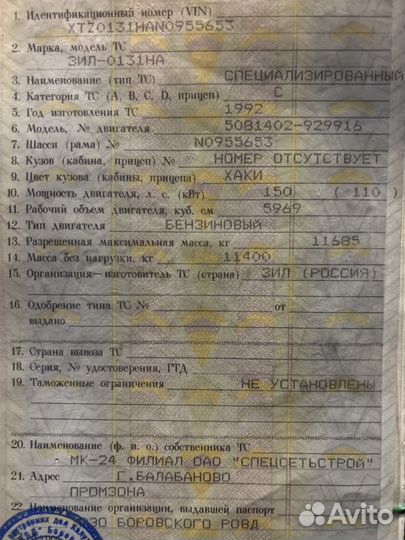 1. Идентификационный номер (VIN)
XTZ0131HAN0955653
2. Марка, модель ТС
ЗИЛ-0131НА
3. Наименование (тип ТС) СПЕЦИАЛИЗИРОВАННЫЙ
4. Категория ТС (A, B, C, D, прицеп) C
5. Год изготовления ТС 1992
6. Модель, № двигателя 5081402-929916
7. Шасси (рама) № N0955653
8. Кузов (кабина, прицеп) № НОМЕР ОТСУТСТВУЕТ
9. Цвет кузова (кабины, прицепа) ХАКИ
10. Мощность двигателя, л. с. (кВт) 150 ( 110 )
11. Рабочий объем двигателя, куб. см 5969
12. Тип двигателя БЕНЗИНОВЫЙ
13. Разрешенная максимальная масса, кг 11685
14. Масса без нагрузки, кг 11400
15. Организация-изготовитель ТС (страна) ЗИЛ (РОССИЯ)
16. Одобрение типа ТС № от
выдано
17. Страна вывоза ТС
18. Серия, № удостоверения, ГТД
19. Таможенные ограничения НЕ УСТАНОВЛЕНЫ
20. Наименование (ф. и. о.) собственника ТС
- МК-24 ФИЛИАЛ ОАО "СПЕЦСЕТЬСТРОЙ"
21. Адрес Г.БАЛАБАНОВО
ПРОМЗОНА
22. Наименование организации, выдавшей паспорт
ЭО БОРОВСКОГО РОВД
Avito